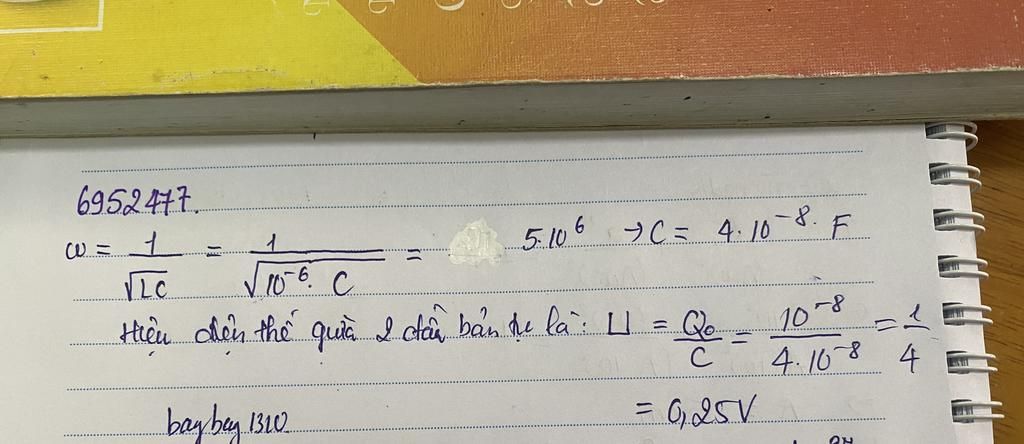 6952477.
ω = 1/√LC = 1/√10⁻⁶. C = 5.10⁶ → C = 4.10⁻⁸. F
Hiệu điện thế giữa 2 đầu bản tụ là: U = Q₀/C = 10⁻⁸/4.10⁻⁸ = 1/4
= 0,25V
baybay1310